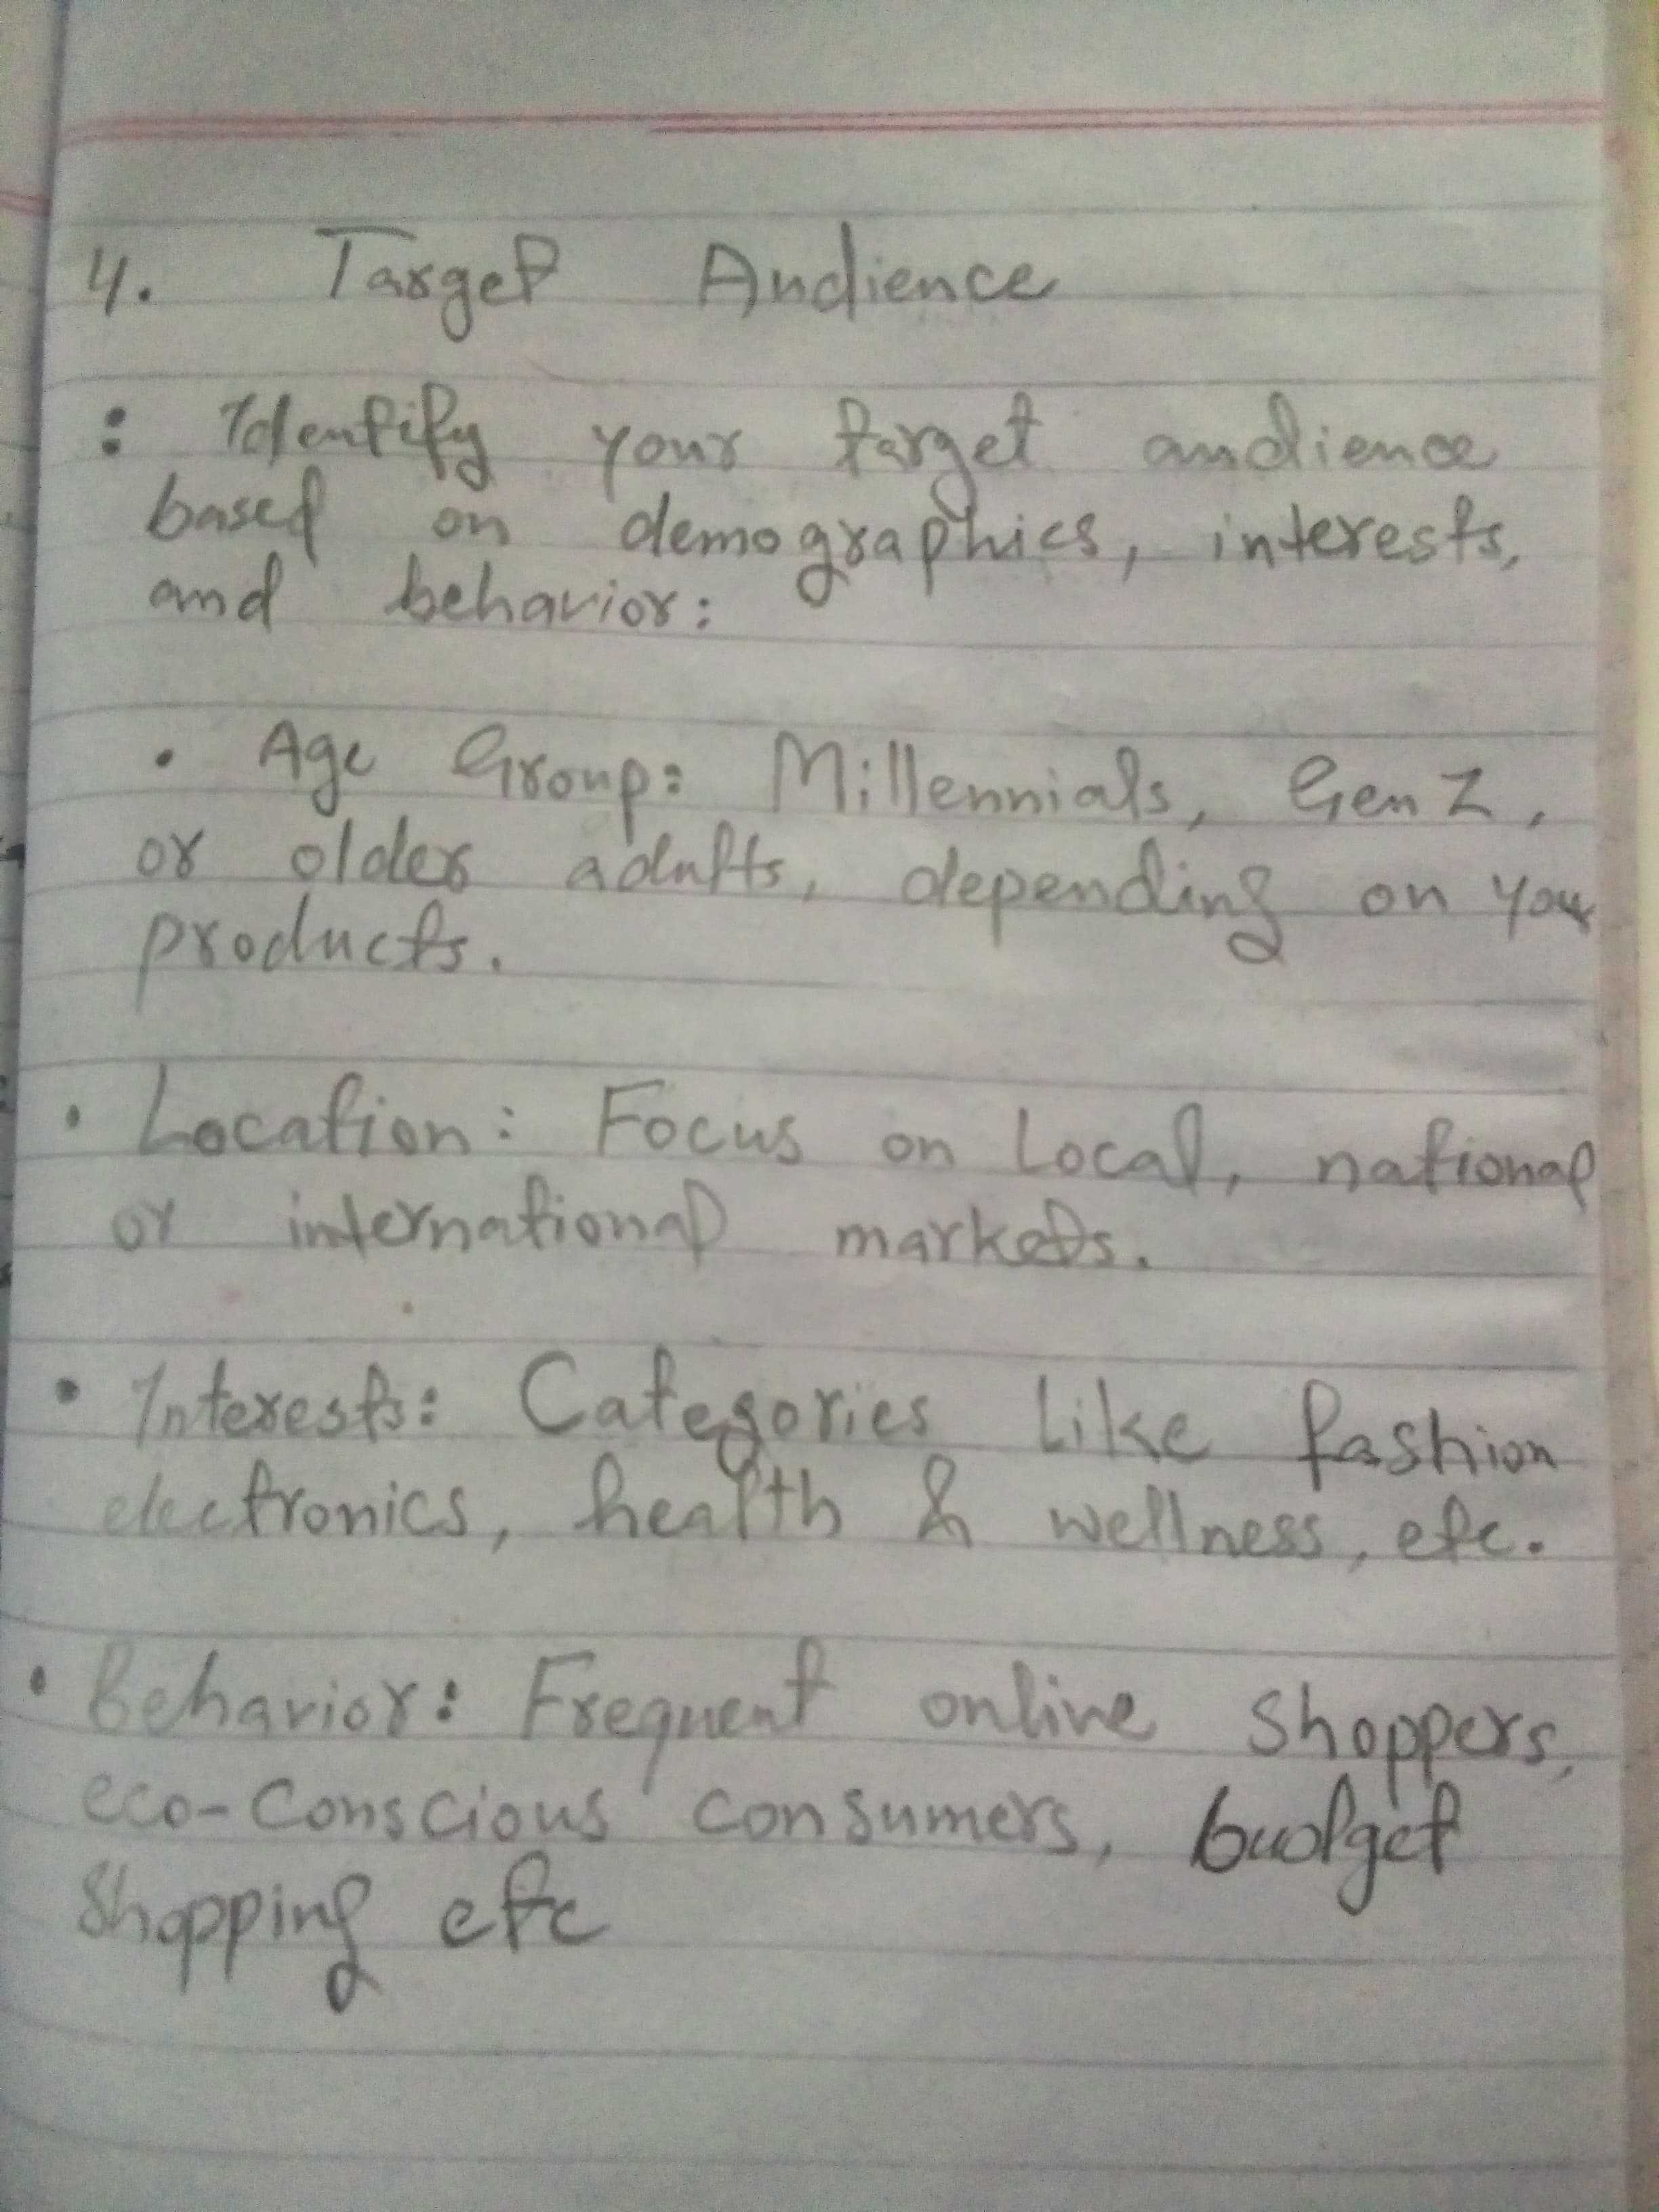 4. Target Audience
: Identify your target audience
based on demographics, interests,
and behavior:
• Age Group: Millennials, Gen Z,
or older adults, depending on your
products.
• Location: Focus on Local, national
or international markets.
• Interests: Categories like fashion
electronics, health & wellness, etc.
• Behavior: Frequent online shoppers,
eco-conscious consumers, budget
shopping etc